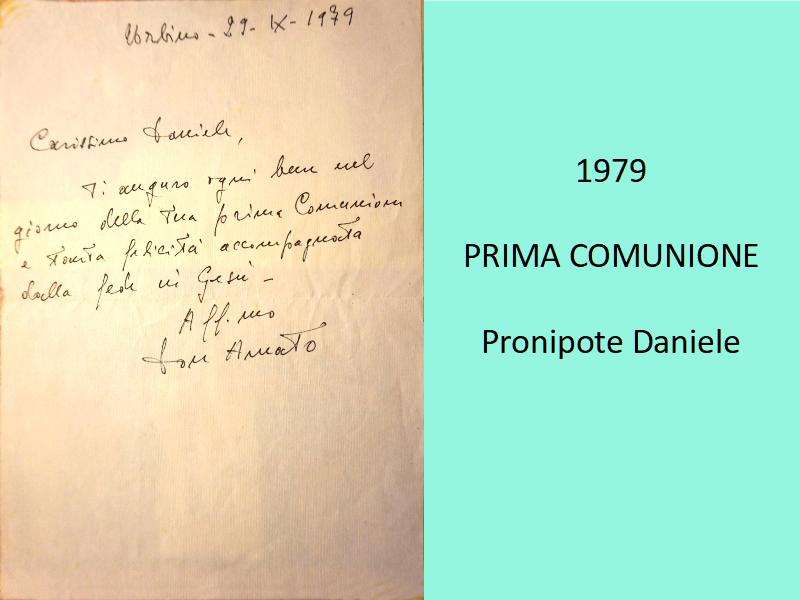 Urbino - 29 - IX - 1979
Carissimo Daniele,
Ti auguro ogni bene nel
giorno della Tua prima Comunione
e tanta felicità accompagnata
dalla fede in Gesù -
Aff.mo
don Amato
1979
PRIMA COMUNIONE
Pronipote Daniele